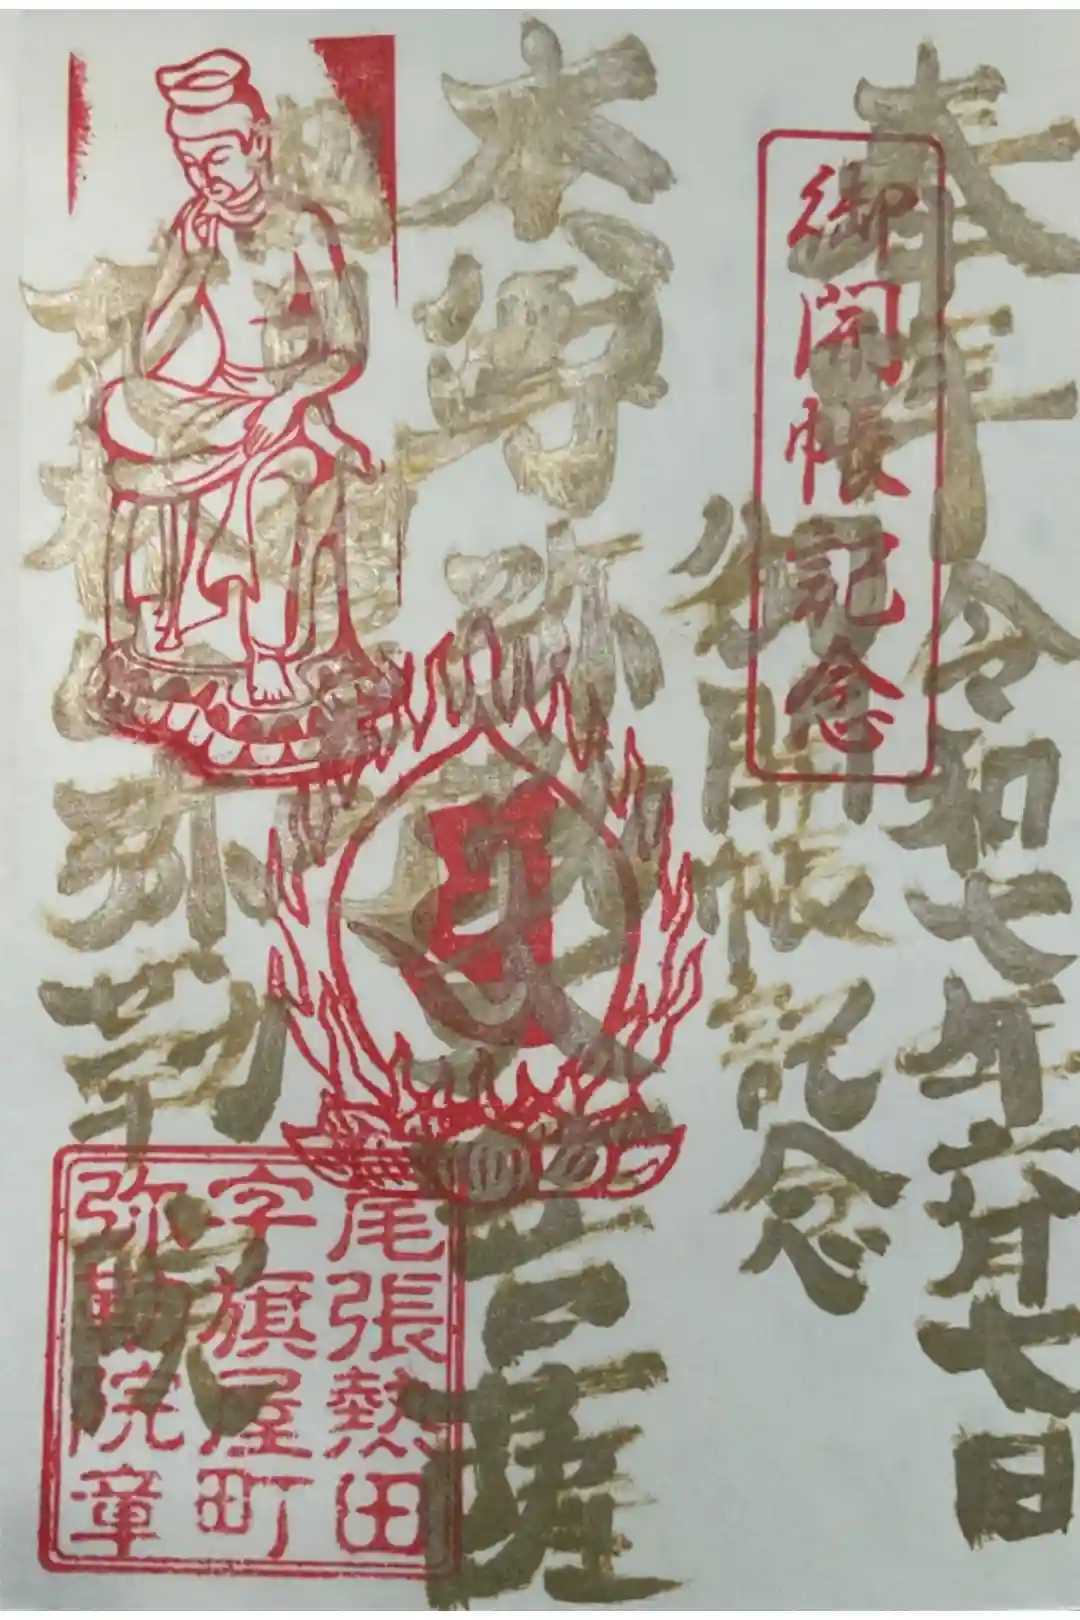 奉拝令和七年六月七日
御開帳記念
御開帳記念
本尊弥勒菩薩
弥勒院
尾張熱田
字旗屋町
弥勒院章